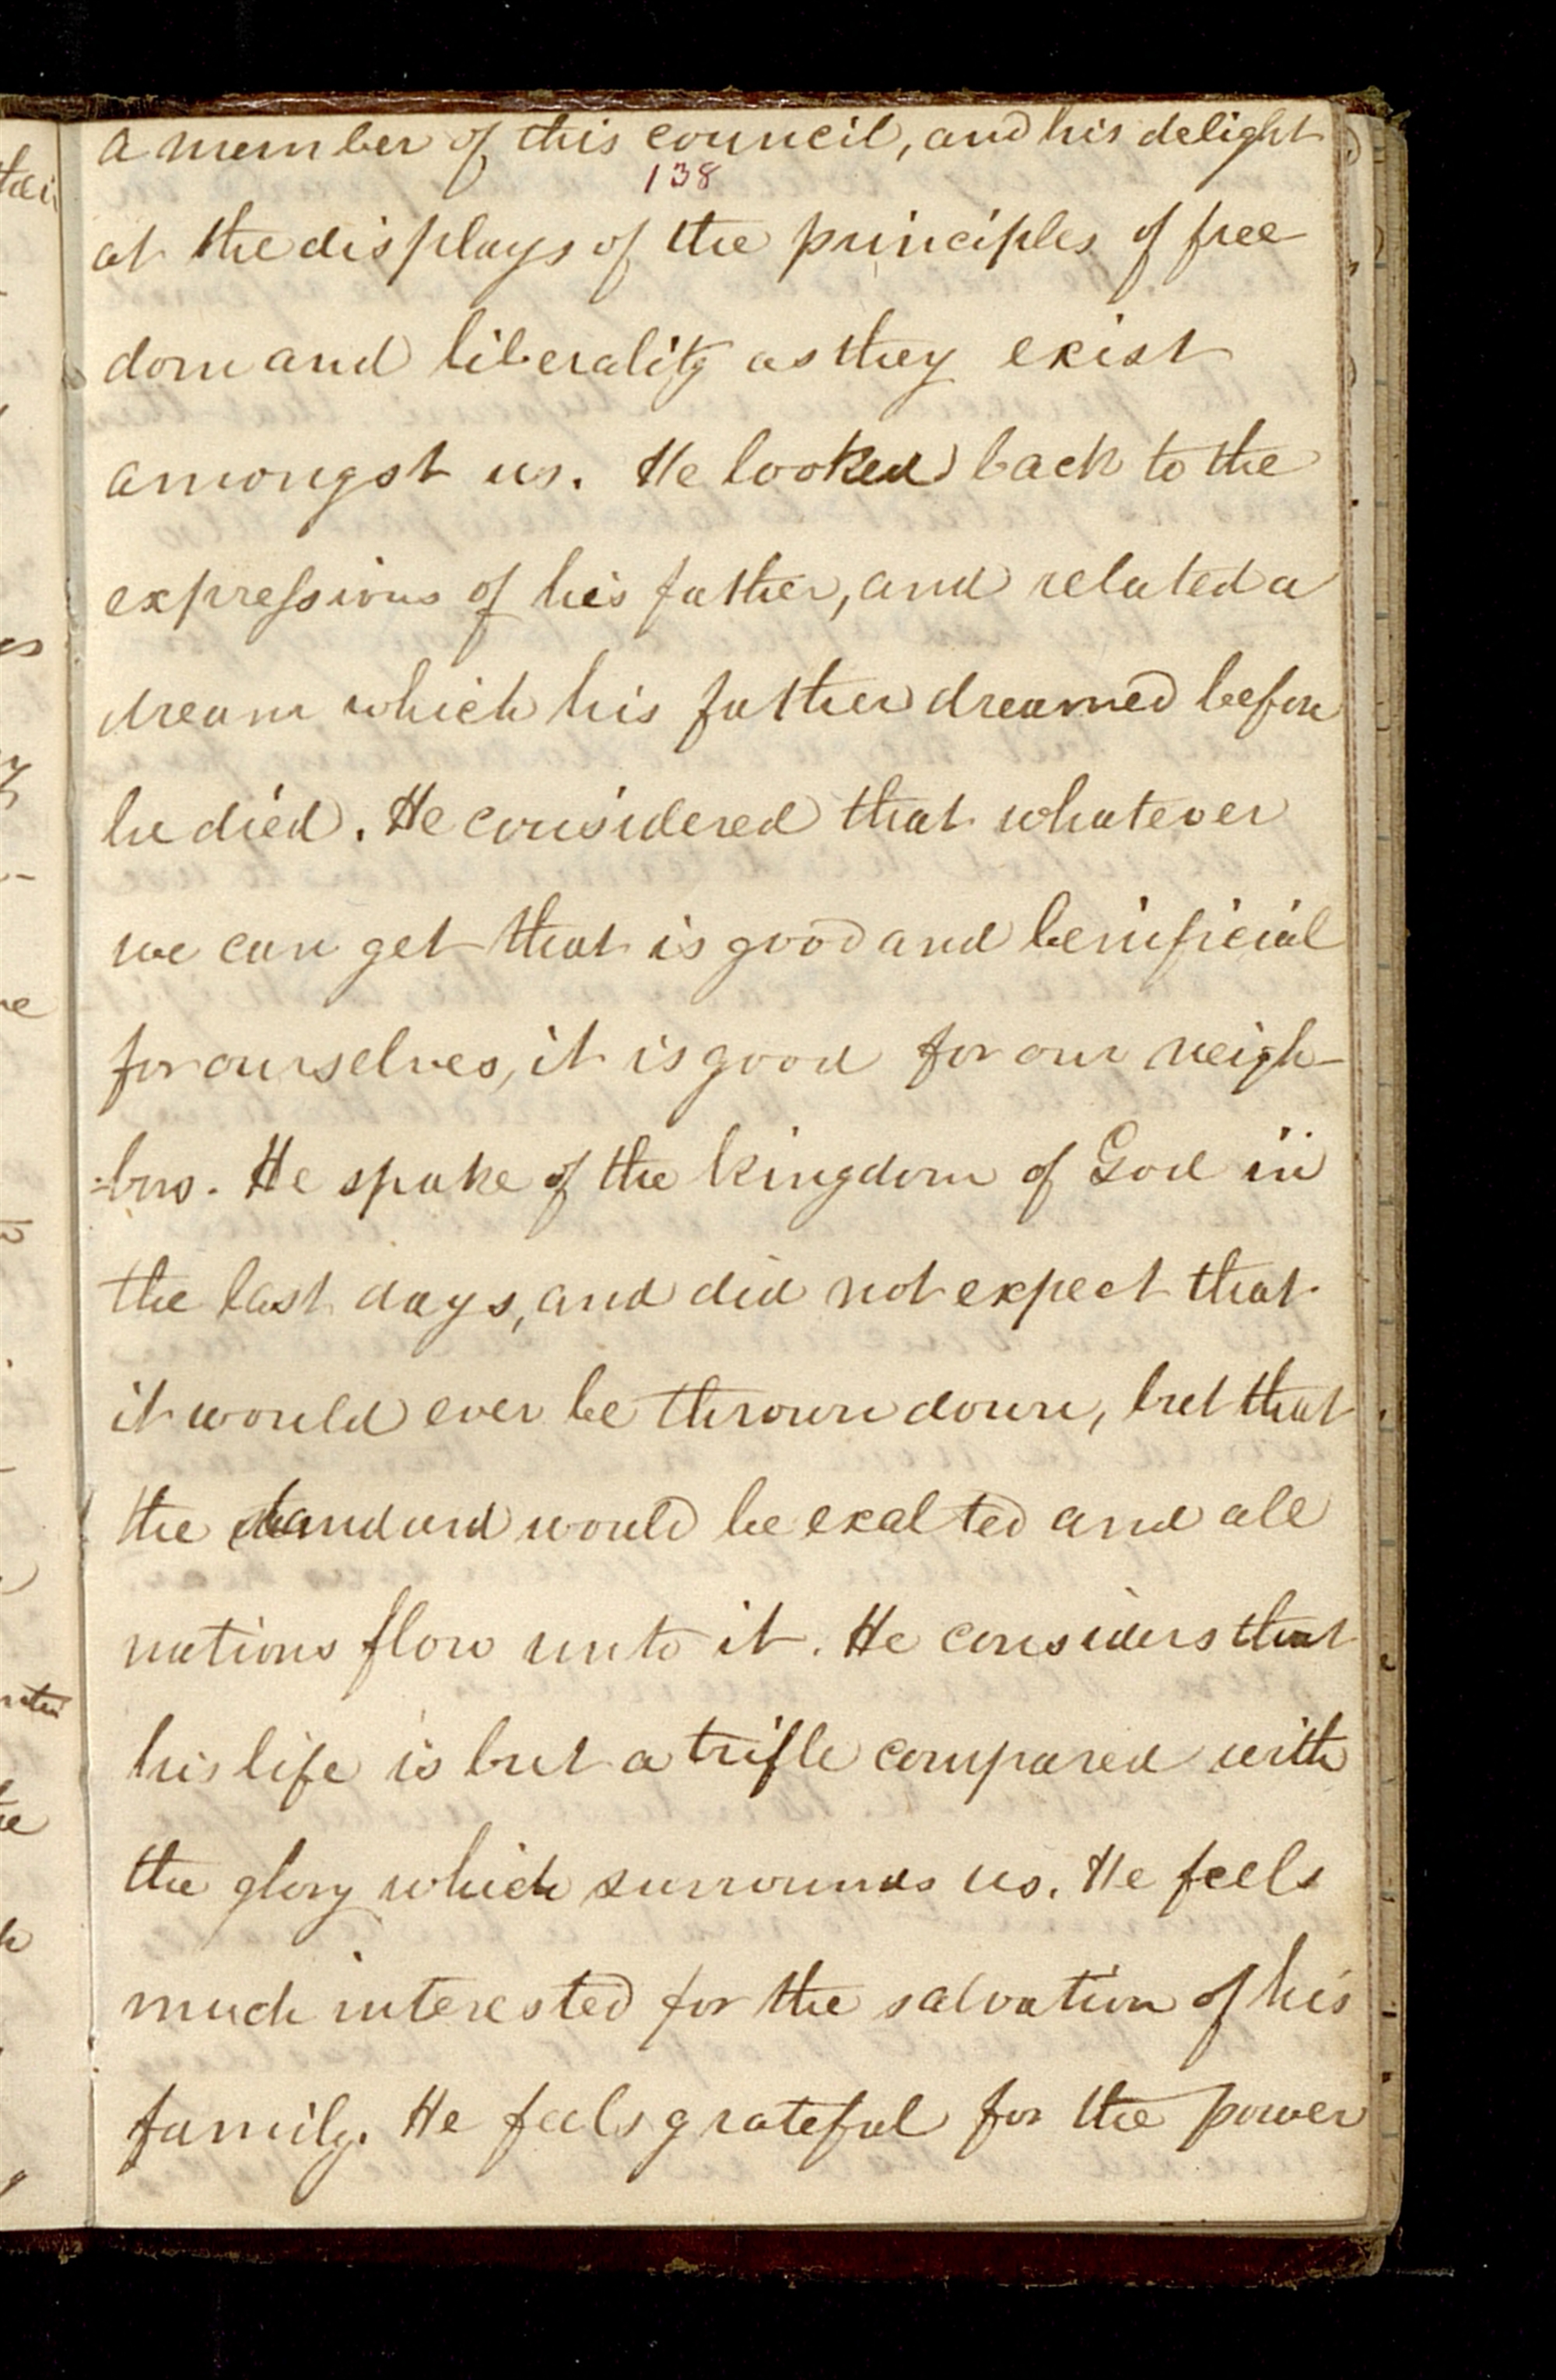 a member of this council, and his delight
138
at the displays of the principles of free
dom and liberality as they exist
amongst us. He looked back to the
expressions of his father, and related a
dream which his father dreamed before
he died. He considered that whatever
we can get that is good and benificial
for ourselves, it is good for our neigh-
=bors. He spake of the kingdom of God in
the last days, and did not expect that
it would ever be thrown down, but that
the standard would be exalted and all
nations flow unto it. He considers that
his life is but a trifle compared with
the glory which surrounds us. He feels
much interested for the salvation of his
family. He feels grateful for the power